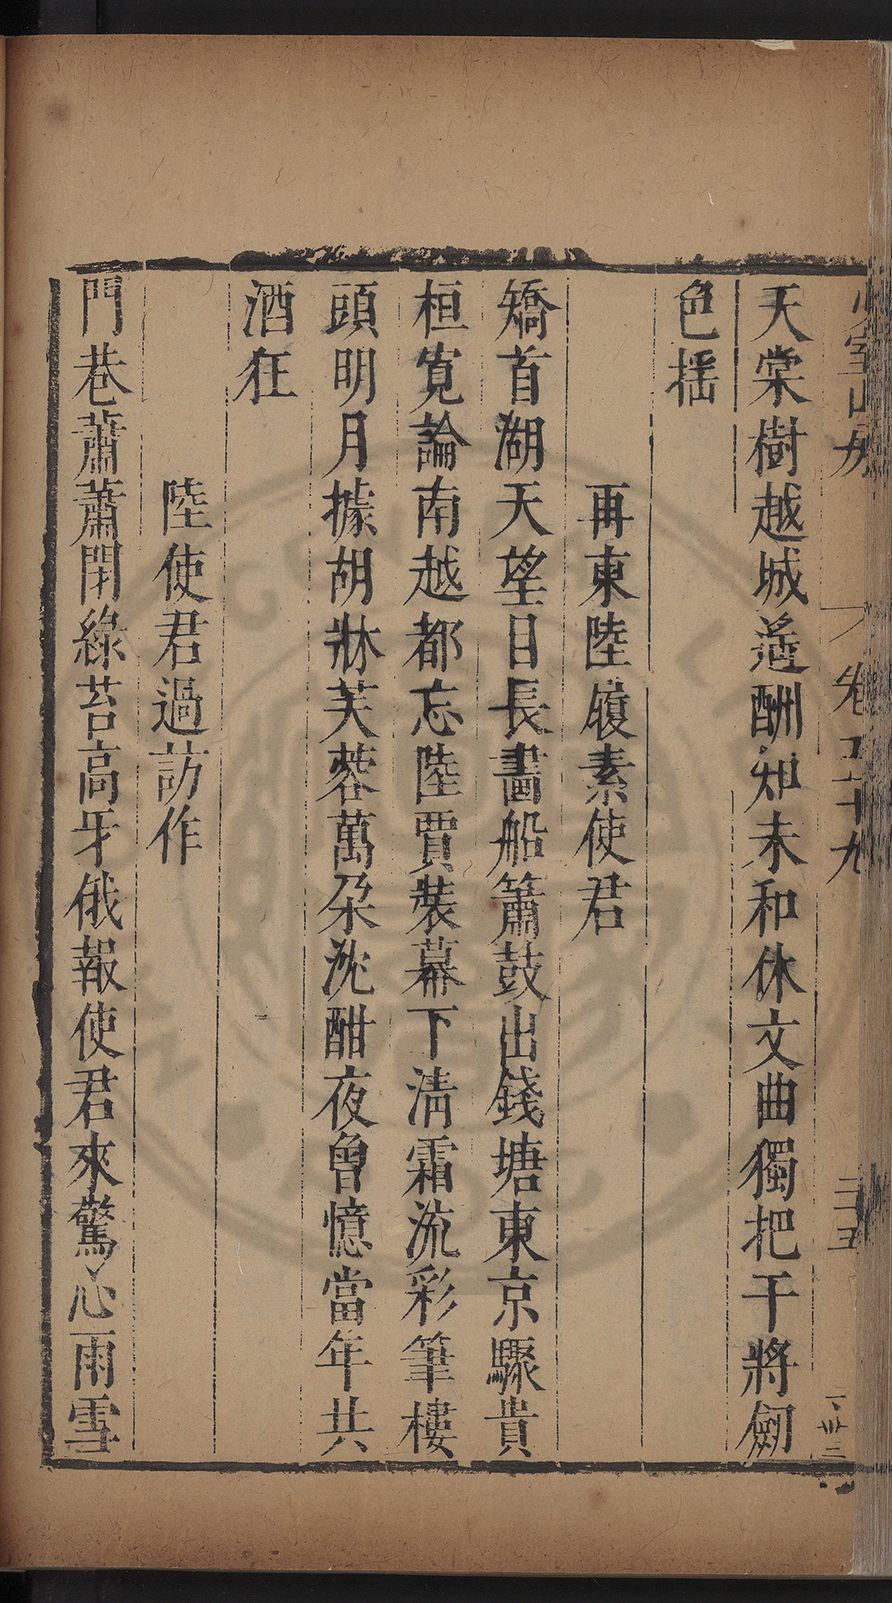 少室山房
卷五十九
三五
天棠樹越城遙酬知未和休文曲獨把干將劒
色揺
再東陸履素使君
矯首湖天望日長畫船簫鼓出錢塘東京驟貴
桓寛論南越都忘陸賈裝幕下清霜流彩筆樓
頭明月據胡牀芙蓉萬朶沈酣夜曾憶當年共
酒狂
陸使君過訪作
門巷蕭蕭閉綠苔高牙俄報使君來驚心雨雪